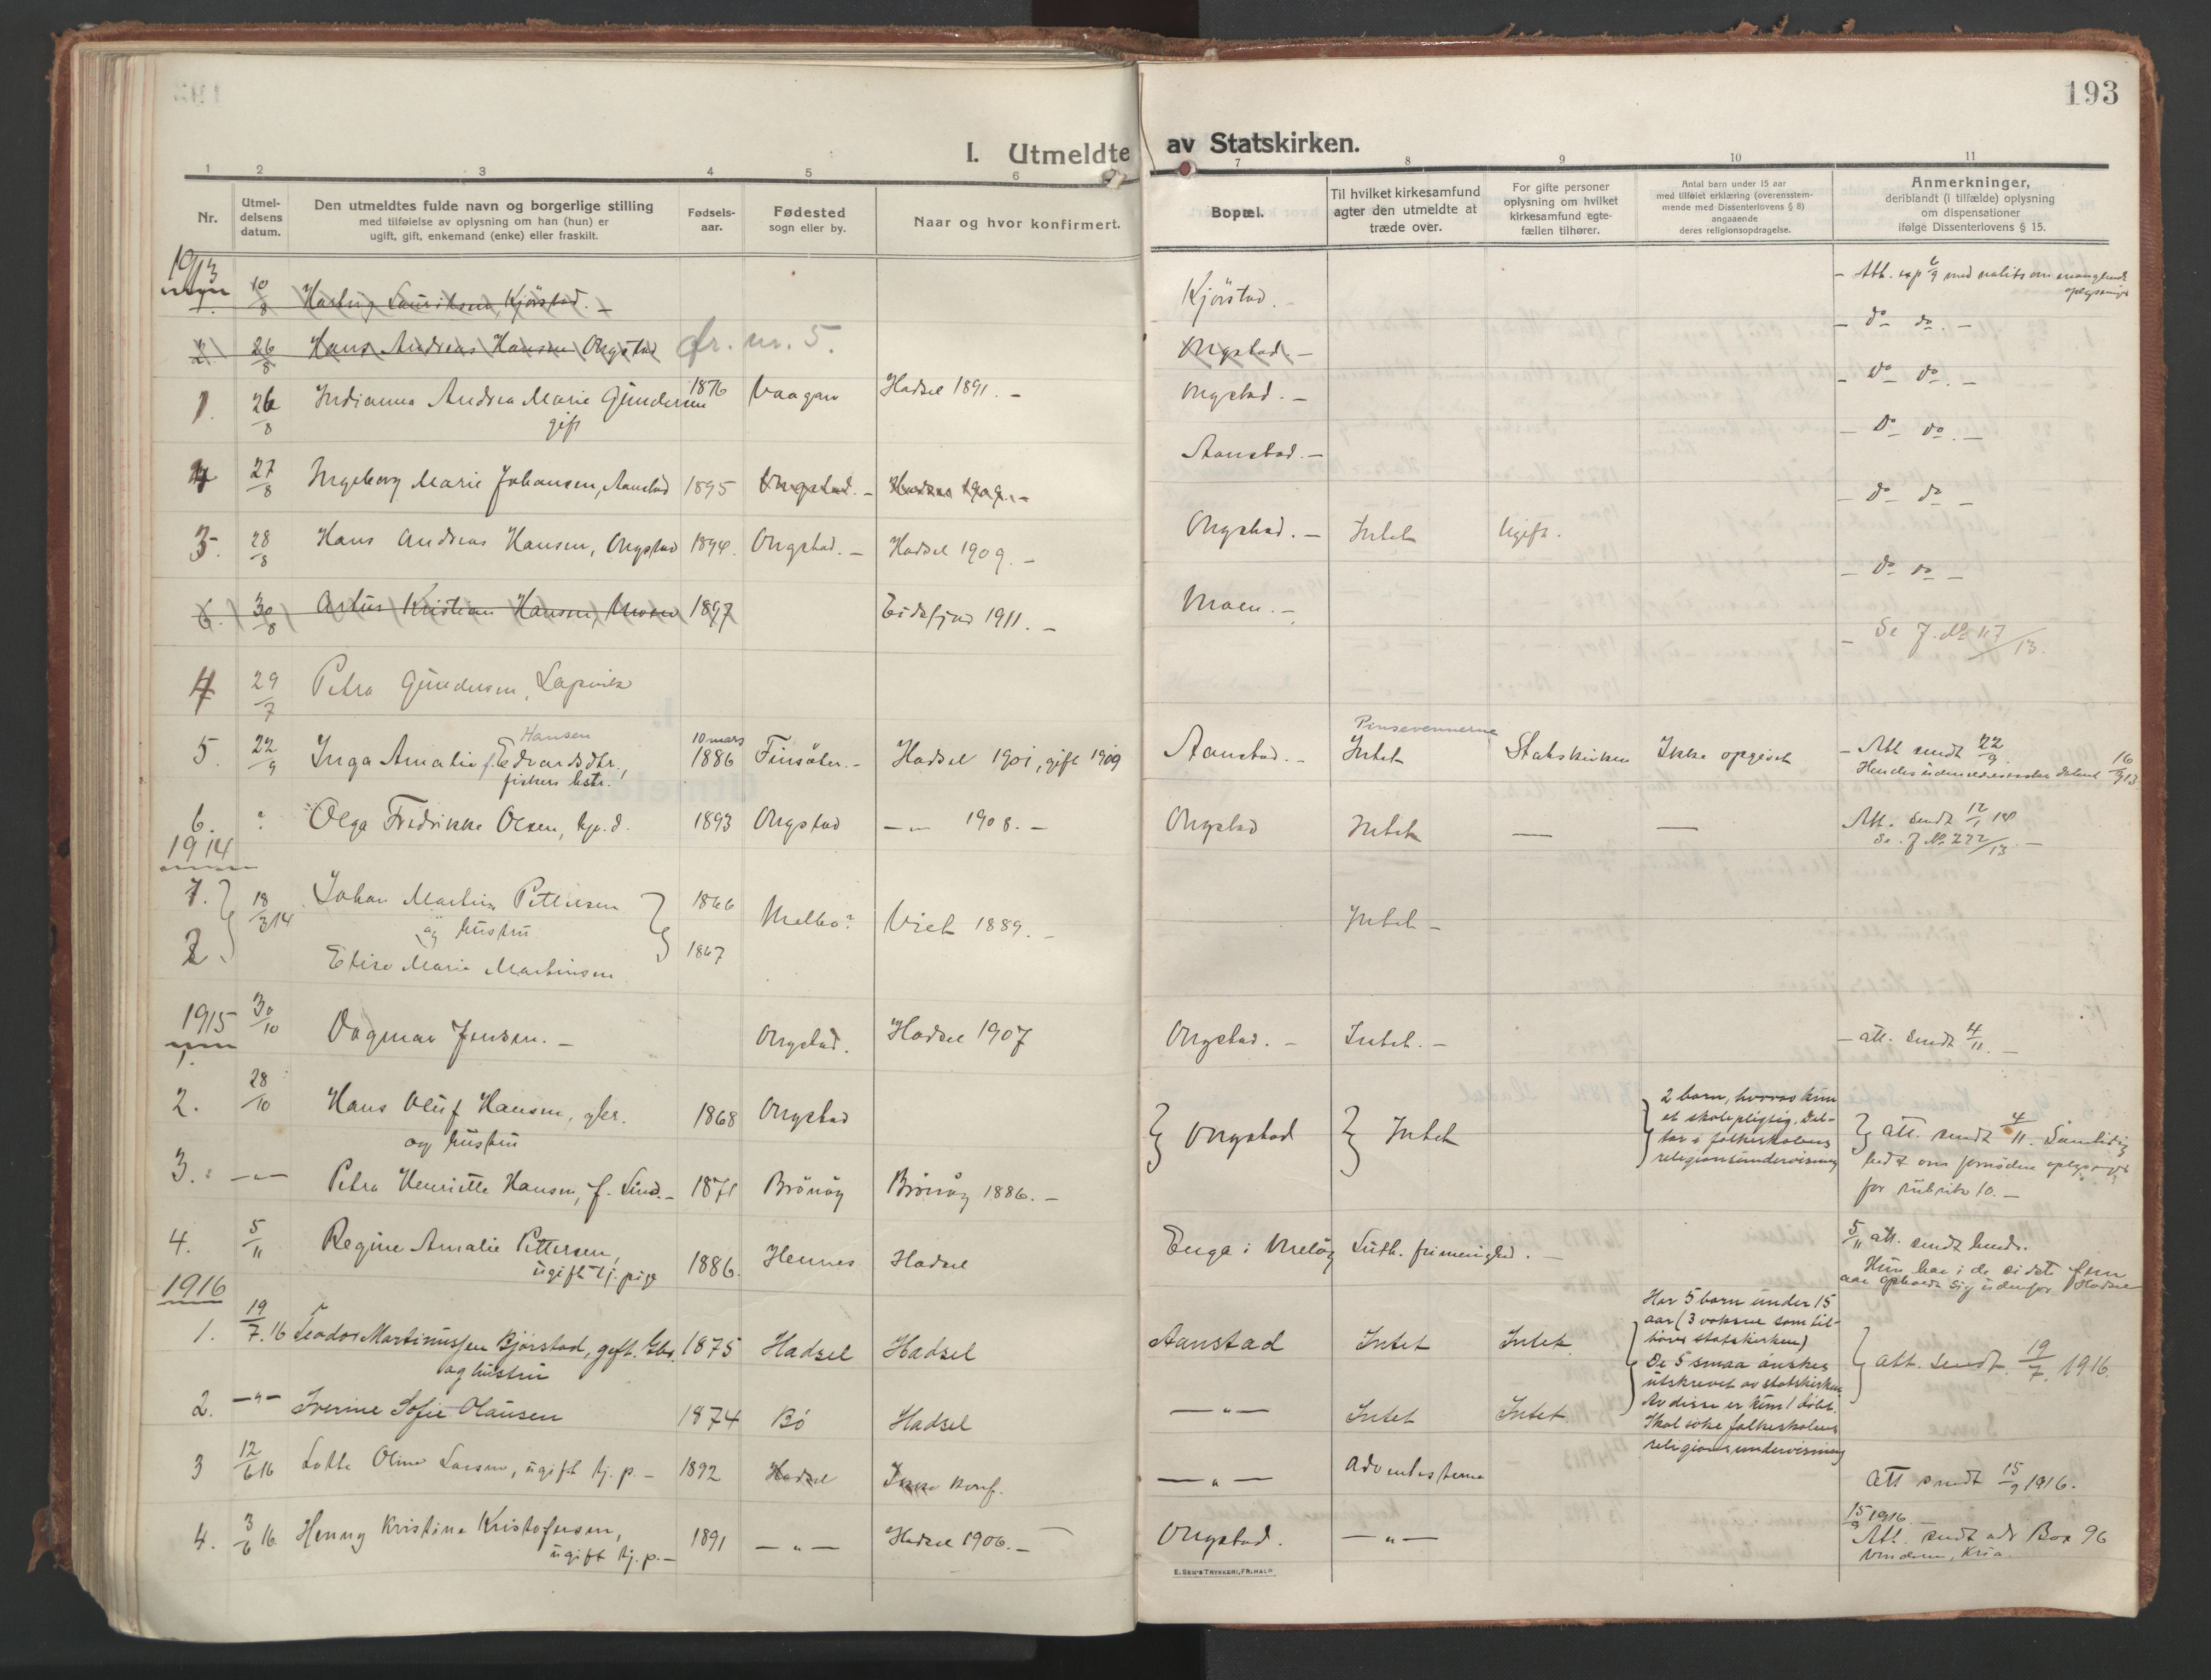 193
I. Utmeldte av Statskirken.
1 2 3 4 5 6 7 8 9 10 11
Nr.
Utmel-
delsens
datum.
Den utmeldtes fulde navn og borgerlige stilling
med tilføielse av oplysning om han (hun) er
ugift, gift, enkemand (enke) eller fraskilt.
Fødsels-
aar.
Fødested
sogn eller by.
Naar og hvor konfirmert.
Bopæl.
Til hvilket kirkesamfund
agter den utmeldte at
træde over.
For gifte personer
oplysning om hvilket
kirkesamfund egte-
fællen tilhører.
Antal barn under 15 aar
med tilføiet erklæring (overensstem-
mende med Dissenterlovens § 8)
angaaende
deres religionsopdragelse.
Anmerkninger,
deriblandt (i tilfælde) oplysning
om dispensationer
ifølge Dissenterlovens § 15.
1913
1. 10/8 Hartvig Lauritsen, Kjørstad. – Kjørstad. – Att. exp 6/9 med notits om manglende
oplysninger
2. 26/8 Hans Andreas Hansen Ongstad cfr. nr. 5. Ongstad. – – do do. –
1. 26/8 Indianna Andrea Marie Gundersen 1876 Vaagan Hadsel 1891. – Ongstad. – – do do. –
gift
4 27/8 Ingeborg Marie Johansen, Aanstad 1895 Ongstad. – Hadsel 1909. – Aanstad. – – Do do. –
3. 28/8 Hans Andreas Hansen, Ongstad 1894. Ongstad. – Hadsel 1909. – Ongstad. – Intet Ugift. – do do –
6. 30/8 Artur Kristian Hansen, Moen 1897 Eidsfjord 1911. – Moen. – – do do –
4 29/7 Petra Gundersen, Lapvik – Se J. No 117/13.
Hansen 10 mars Pinsevennerne
5. 22/9 Inga Amalie Edvardsdtr., 1886 Finsæter. – Hadsel 1901, gift 1909 Aanstad. – Intet Statskirken Ikke opgivet – Att sendt 22/9.
fiskers hstr. 16/9 13
6. ? Olga Fredrikke Olsen, 1893 Ongstad –"– 1908. – Ongstad Intet — — Att. sendt 12/1 14
Se J No 222/13. –
1914
1. 18/3 14 Johan Martin Pettersen 1866 Melbo? Viet 1889. – Intet –
og hustru
2. Elise Marie Martinsen 1867
1915
1. 30/10 Dagmar Jensen. – Ongstad. Hadsel 1907 Ongstad. – Intet. – – att. sendt 4/11. –
2. 28/10 Hans Oluf Hansen, gbr. 1868 Ongstad Ongstad Intet
og hustru
2 barn, hvorav kun
et skolepligtig. Del-
tar i folkeskolens
religionsundervisning
att. sendt 4/11. Samtidig
bedt om fornøden oplysninger
for rubrik 10. –
3. –"– Petra Henriette Hansen, f. Lind. – 1871 Brönöy Brönöy 1886. –
4. 5/11 Regine Amalie Pettersen, 1886. Hennes Hadsel Enga i Meløy Luth. frimenighed. –
ugift tj. pige
5/11 att. sendt hende.
Hun har i de sidste fem
aar opholdt sig udenfor Hadsel
1916
1. 19/7.16 Teodor Martinussen Bjørstad, gift. Gbr. 1875 Hadsel Hadsel Aanstad Intet Intet
og hustru
Har 5 barn under 15
aar (3 voksne som til-
hører statskirken)
De 5 smaa ønskes
utskrevet av statskirken
Av disse er kun 1 døbt.
Skal søke folkeskolens
religionsundervisning
att. sendt 19/7. 1916.
2. –"– Iverine Sofie Olausen 1874 Bø Hadsel –"– Intet Intet
3 12/6 16 Lotte Oline Larsen, ugift tj. p. – 1892 Hadsel Ikke konf. –"– Adventisterne Att sendt 15/9 1916.
4. 3/6 16 Henny Kristine Kristofersen, 1891 –"– Hadsel 1906. – Ongstad. –"–
ugift tj. p. –
15/9 1916. –
Att. sendt adr Box 96
Vinderen, Kria.
E. SEM'S TRYKKERI, FR.HALD